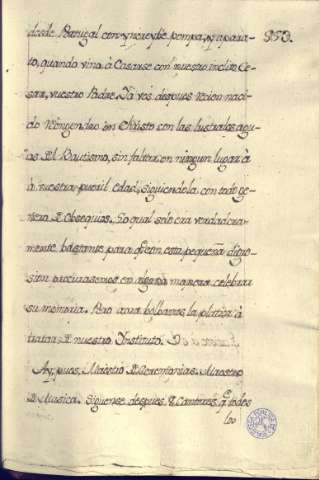 953.
desde Portugal con yncreyble pompa, y apara-
to, quando vino à Casarse con nuestro inclito Ce-
sar, vuestro Padre. Ya vos despues recien naci-
do reengendro en Christo con las lustrales agu-
as del Bautismo, sin faltar en ningun lugar à
à vuestra pueril edad, siguiendola con todo ge-
nero de Obsequios. Lo qual solo era verdadera-
mente bastante para que con esta pequeña digre-
sion procurasemos en alguna manera celebrar
su memoria. Pero aora bolbamos la platica à
tratar de nuestro Instituto.
Ay, pues, Maestro de Ceremonias. Maestro
de Musica. Siguense despues 8 Cantores, que todos
los